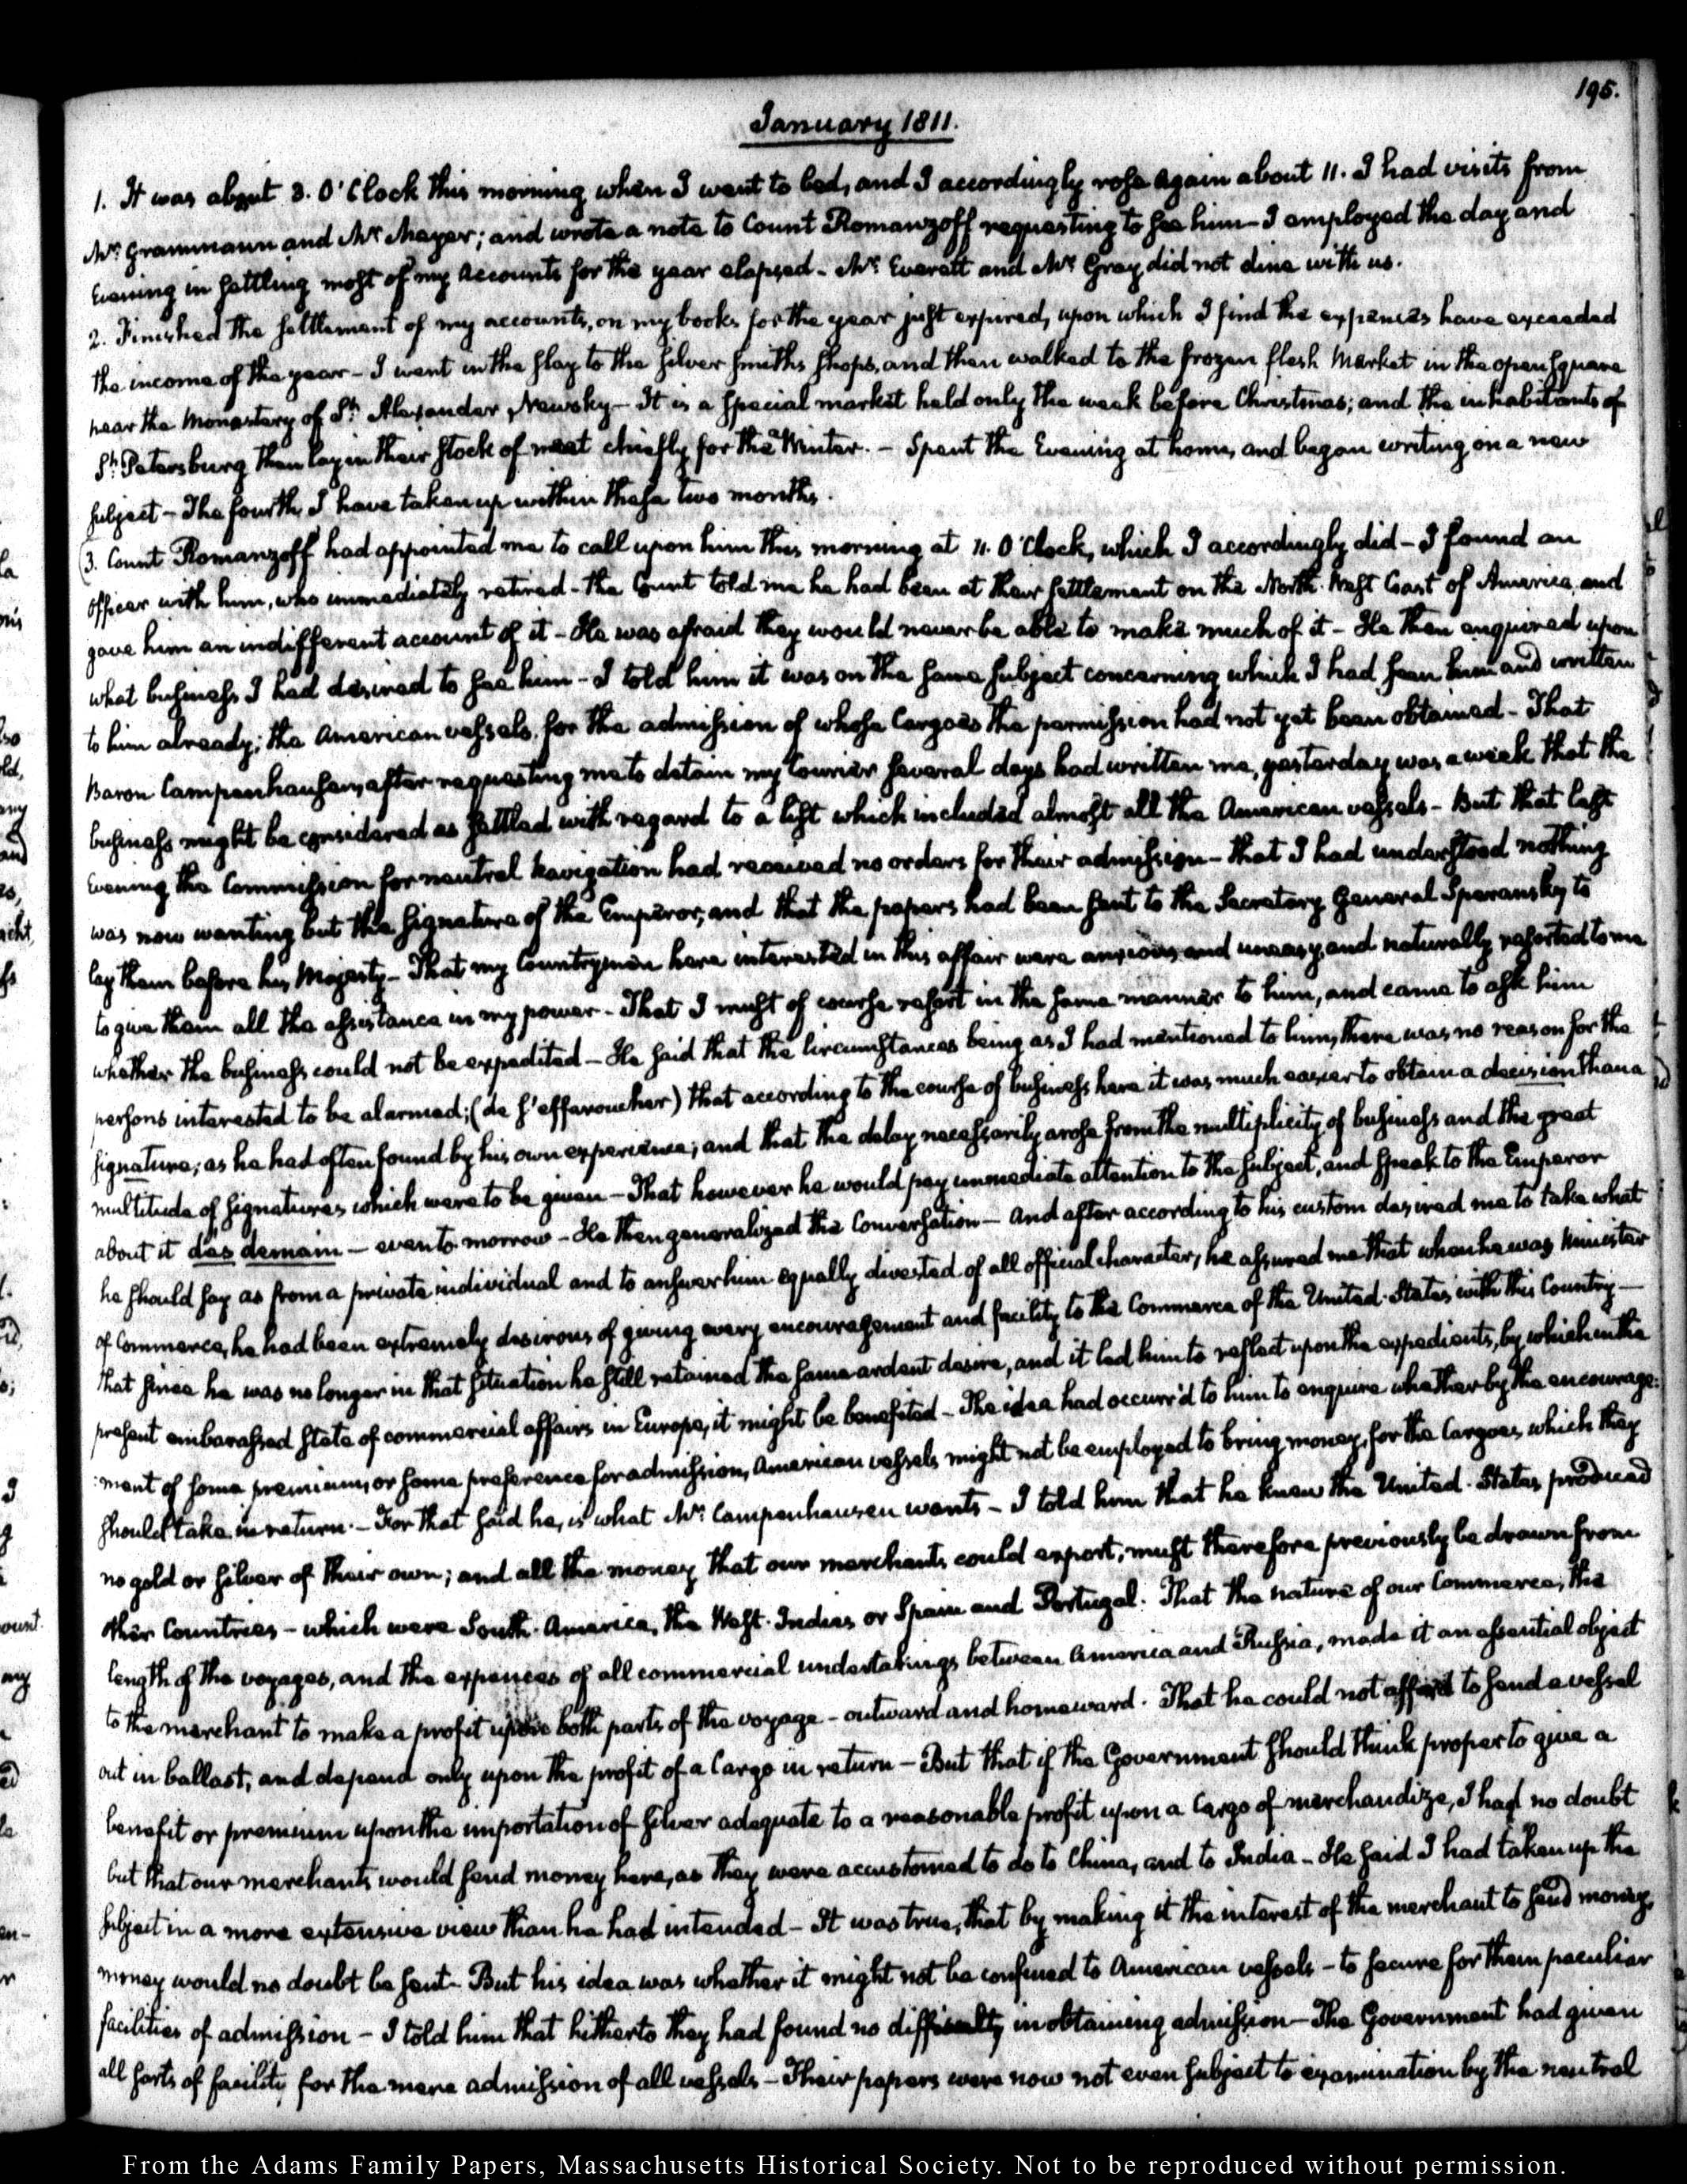 195.
January 1811.
1. It was about 3. O'Clock this morning when I went to bed, and I accordingly rose again about 11. I had visits from
Mr. Grammann and Mr Mayer; and wrote a note to Count Romanzoff requesting to see him— I employed the day and
Evening in settling most of my Accounts for the year elapsed— Mr. Everett and Mr Gray did not dine with us.
2. Finished the settlement of my accounts, on my books for the year just expired, upon which I find the expences have exceeded
the income of the year— I went in the slay to the silver smiths shops, and then walked to the frozen flesh Market in the open square
near the Monastery of St. Alexander Newsky— It is a special market held only the week before Christmas; and the inhabitants of
St. Petersburg then lay in their stock of meat chiefly for the Winter.— Spent the Evening at home, and began writing on a new
subject— The fourth I have taken up within these two months.
(3. Count Romanzoff had appointed me to call upon him this morning at 11. O'Clock, which I accordingly did— I found an
Officer with him, who immediately retired— the Count told me he had been at their settlement on the North-West Coast of America, and
gave him an indifferent account of it— He was afraid they would never be able to make much of it— He then enquired upon
what business I had desired to see him— I told him it was on the same subject concerning which I had seen him and written
to him already; the American vessels, for the admission of whose Cargoes the permission had not yet been obtained— That
Baron Campenhausen, after requesting me to detain my Courier several days had written me, yesterday was a week that the
business might be considered as settled with regard to a list which included almost all the American vessels— But that last
Evening the Commission for neutral Navigation had received no orders for their admission— That I had understood nothing
was now wanting but the signature of the Emperor, and that the papers had been sent to the Secretary General Speransky to
lay them before his Majesty— That my Countrymen here interested in this affair were anxious and uneasy, and naturally resorted to me
to give them all the assistance in my power— That I must of course resort in the same manner to him, and came to ask him
whether the business could not be expedited— He said that the circumstances being as I had mentioned to him, there was no reason for the
persons interested to be alarmed; (de s'effaroucher) that according to the course of business here it was much easier to obtain a decision than a
signature, as he had often found by his own experience; and that the delay necessarily arose from the multiplicity of business and the great
multitude of signatures which were to be given— That however he would pay immediate attention to the subject, and speak to the Emperor
about it dès demain— even to-morrow— He then generalized the Conversation— And after according to his custom desired me to take what
he should say as from a private individual and to answer him equally divested of all official character, he assured me that when he was Minister
of Commerce, he had been extremely desirous of giving every encouragement and facility to the Commerce of the United-States with this Country—
that since he was no longer in that situation he still retained the same ardent desire, and it led him to reflect upon the expedients, by which in the
present embarassed state of commercial affairs in Europe, it might be benefited— The idea had occurr'd to him to enquire whether by the encourage:
:ment of some premium, or some preference for admission, American vessels might not be employed to bring money, for the Cargoes which they
should take in return.— For that said he, is what Mr. Campenhausen wants— I told him that he knew the United-States produced
no gold or silver of their own; and all the money that our merchants could export, must therefore previously be drawn from
other Countries— which were South-America, the West-Indies, or Spain and Portugal. That the nature of our Commerce, the
length of the voyages, and the expences of all commercial undertakings between America and Russia, made it an essential object
to the merchant to make a profit upon both parts of the voyage— outward and homeward. That he could not afford to send a vessel
out in ballast, and depend only upon the profit of a Cargo in return— But that if the Government should think proper to give a
benefit or premium upon the importation of silver adequate to a reasonable profit upon a Cargo of merchandize, I had no doubt
but that our merchants would send money here, as they were accustomed to do to China, and to India— He said I had taken up the
subject in a more extensive view than he had intended— It was true, that by making it the interest of the merchant to send money,
money would no doubt be sent— But his idea was whether it might not be confined to American vessels— to secure for them peculiar
facilities of admission— I told him that hitherto they had found no difficulty in obtaining admission— The Government had given
all sorts of facility for the mere admission of all vessels— Their papers were now not even subject to examination by the neutral
From the Adams Family Papers, Massachusetts Historical Society. Not to be reproduced without permission.